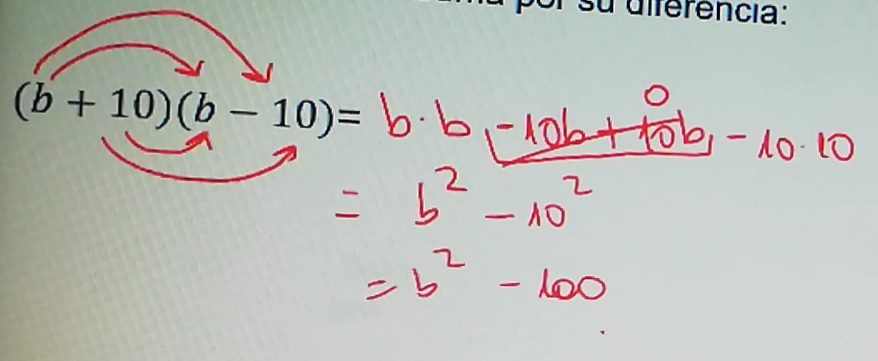 por su diferencia:
(b + 10)(b − 10)= b·b -10b + 10b - 10·10
0
= b² - 10²
= b² - 100